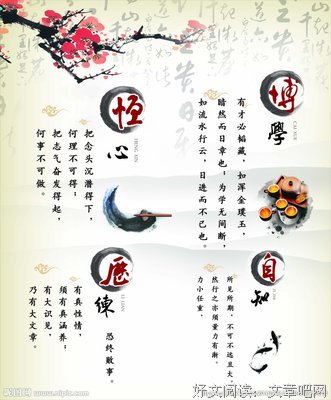 博學
有才必韬藏，如浑金璞玉，
暗然而日章也；为学无间断，
如流水行云，日进而不已也。
恒心
HENG XIN
把念头沉潜得下，
何理不可得；
把志气奋发得起，
何事不可做。
自知
所见所期，不可不远且大，
然行之亦须量力有渐。
力小任重，
恐终败事。
歷練
LI LIAN
有真性情，
须有真涵养；
有大识见，
乃有大文章。
昵图网 www.nipic.com
好文阅读：文章吧网